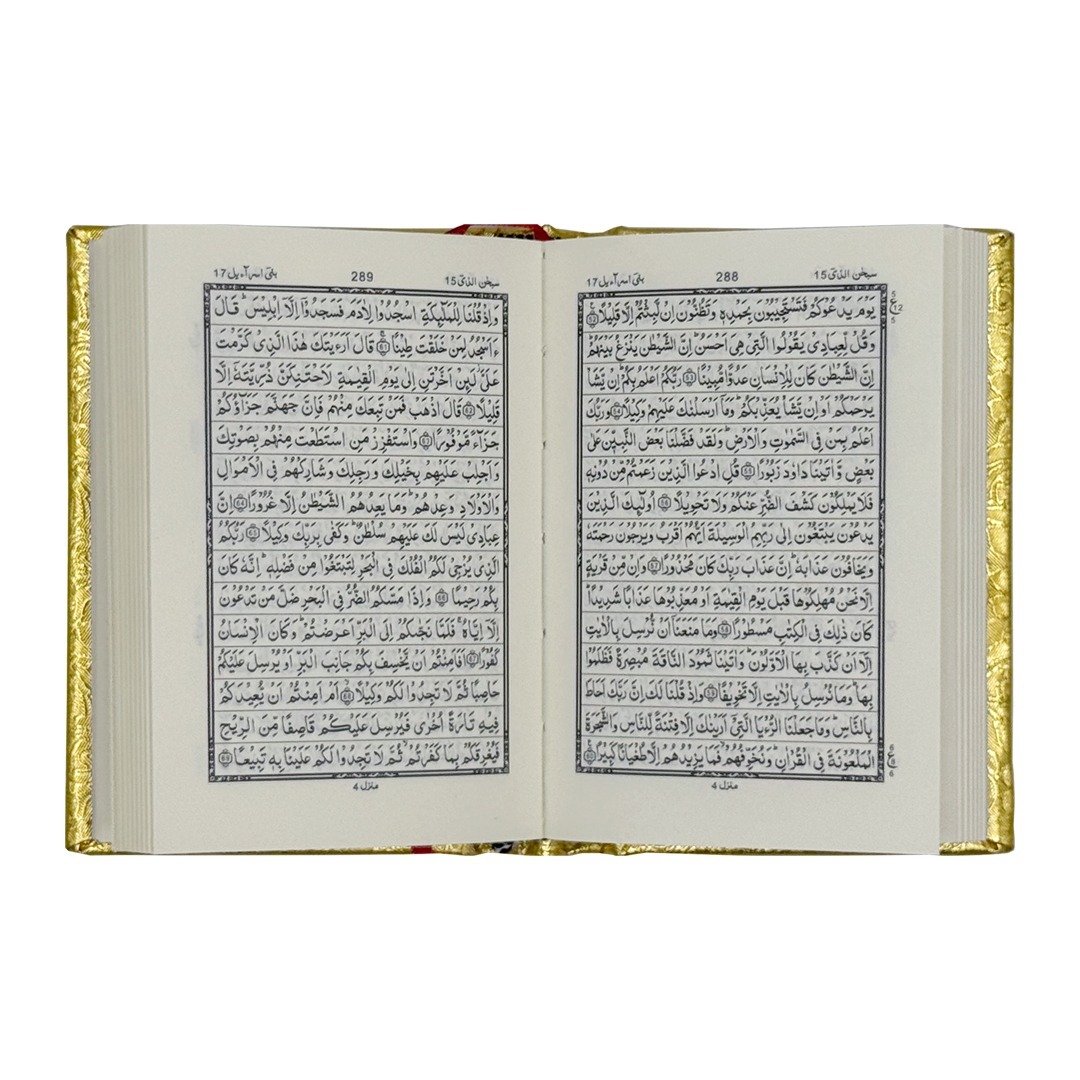 سبحٰن الذی ١٥ 288 بنی اسرآءیل 17
یَوْمَ یَدْعُوْكُمْ فَتَسْتَجِیْبُوْنَ بِحَمْدِهٖ وَتَظُنُّوْنَ اِنْ لَّبِثْتُمْ اِلَّا قَلِیْلًا ۝٥٢
وَقُلْ لِّعِبَادِیْ یَقُوْلُوا الَّتِیْ هِیَ اَحْسَنُ ؕ اِنَّ الشَّیْطٰنَ یَنْزَغُ بَیْنَهُمْ ؕ
اِنَّ الشَّیْطٰنَ كَانَ لِلْاِنْسَانِ عَدُوًّا مُّبِیْنًا ۝٥٣ رَبُّكُمْ اَعْلَمُ بِكُمْ ؕ اِنْ یَّشَاْ
یَرْحَمْكُمْ اَوْ اِنْ یَّشَاْ یُعَذِّبْكُمْ ؕ وَمَاۤ اَرْسَلْنٰكَ عَلَیْهِمْ وَكِیْلًا ۝٥٤ وَرَبُّكَ
اَعْلَمُ بِمَنْ فِی السَّمٰوٰتِ وَالْاَرْضِ ؕ وَلَقَدْ فَضَّلْنَا بَعْضَ النَّبِیّٖنَ عَلٰی
بَعْضٍ وَّاٰتَیْنَا دَاوٗدَ زَبُوْرًا ۝٥٥ قُلِ ادْعُوا الَّذِیْنَ زَعَمْتُمْ مِّنْ دُوْنِهٖ
فَلَا یَمْلِكُوْنَ كَشْفَ الضُّرِّ عَنْكُمْ وَلَا تَحْوِیْلًا ۝٥٦ اُولٰٓىِٕكَ الَّذِیْنَ
یَدْعُوْنَ یَبْتَغُوْنَ اِلٰی رَبِّهِمُ الْوَسِیْلَةَ اَیُّهُمْ اَقْرَبُ وَیَرْجُوْنَ رَحْمَتَهٗ
وَیَخَافُوْنَ عَذَابَهٗ ؕ اِنَّ عَذَابَ رَبِّكَ كَانَ مَحْذُوْرًا ۝٥٧ وَاِنْ مِّنْ قَرْیَةٍ
اِلَّا نَحْنُ مُهْلِكُوْهَا قَبْلَ یَوْمِ الْقِیٰمَةِ اَوْ مُعَذِّبُوْهَا عَذَابًا شَدِیْدًا ؕ
كَانَ ذٰلِكَ فِی الْكِتٰبِ مَسْطُوْرًا ۝٥٨ وَمَا مَنَعَنَاۤ اَنْ نُّرْسِلَ بِالْاٰیٰتِ
اِلَّاۤ اَنْ كَذَّبَ بِهَا الْاَوَّلُوْنَ ؕ وَاٰتَیْنَا ثَمُوْدَ النَّاقَةَ مُبْصِرَةً فَظَلَمُوْا
بِهَا ؕ وَمَا نُرْسِلُ بِالْاٰیٰتِ اِلَّا تَخْوِیْفًا ۝٥٩ وَاِذْ قُلْنَا لَكَ اِنَّ رَبَّكَ اَحَاطَ
بِالنَّاسِ ؕ وَمَا جَعَلْنَا الرُّءْیَا الَّتِیْۤ اَرَیْنٰكَ اِلَّا فِتْنَةً لِّلنَّاسِ وَالشَّجَرَةَ
الْمَلْعُوْنَةَ فِی الْقُرْاٰنِ ؕ وَنُخَوِّفُهُمْ ۙ فَمَا یَزِیْدُهُمْ اِلَّا طُغْیَانًا كَبِیْرًا ۝٦٠
منزل 4
سبحٰن الذی 15 289 بنی اسرآءیل 17
وَاِذْ قُلْنَا لِلْمَلٰٓىِٕكَةِ اسْجُدُوْا لِاٰدَمَ فَسَجَدُوْۤا اِلَّاۤ اِبْلِیْسَ ؕ قَالَ
ءَاَسْجُدُ لِمَنْ خَلَقْتَ طِیْنًا ۝٦١ قَالَ اَرَءَیْتَكَ هٰذَا الَّذِیْ كَرَّمْتَ
عَلَیَّ ؗ لَىِٕنْ اَخَّرْتَنِ اِلٰی یَوْمِ الْقِیٰمَةِ لَاَحْتَنِكَنَّ ذُرِّیَّتَهٗۤ اِلَّا
قَلِیْلًا ۝٦٢ قَالَ اذْهَبْ فَمَنْ تَبِعَكَ مِنْهُمْ فَاِنَّ جَهَنَّمَ جَزَآؤُكُمْ
جَزَآءً مَّوْفُوْرًا ۝٦٣ وَاسْتَفْزِزْ مَنِ اسْتَطَعْتَ مِنْهُمْ بِصَوْتِكَ
وَاَجْلِبْ عَلَیْهِمْ بِخَیْلِكَ وَرَجِلِكَ وَشَارِكْهُمْ فِی الْاَمْوَالِ
وَالْاَوْلَادِ وَعِدْهُمْ ؕ وَمَا یَعِدُهُمُ الشَّیْطٰنُ اِلَّا غُرُوْرًا ۝٦٤ اِنَّ
عِبَادِیْ لَیْسَ لَكَ عَلَیْهِمْ سُلْطٰنٌ ؕ وَكَفٰی بِرَبِّكَ وَكِیْلًا ۝٦٥ رَبُّكُمُ
الَّذِیْ یُزْجِیْ لَكُمُ الْفُلْكَ فِی الْبَحْرِ لِتَبْتَغُوْا مِنْ فَضْلِهٖ ؕ اِنَّهٗ كَانَ
بِكُمْ رَحِیْمًا ۝٦٦ وَاِذَا مَسَّكُمُ الضُّرُّ فِی الْبَحْرِ ضَلَّ مَنْ تَدْعُوْنَ
اِلَّاۤ اِیَّاهُ ۚ فَلَمَّا نَجّٰىكُمْ اِلَی الْبَرِّ اَعْرَضْتُمْ ؕ وَكَانَ الْاِنْسَانُ
كَفُوْرًا ۝٦٧ اَفَاَمِنْتُمْ اَنْ یَّخْسِفَ بِكُمْ جَانِبَ الْبَرِّ اَوْ یُرْسِلَ عَلَیْكُمْ
حَاصِبًا ثُمَّ لَا تَجِدُوْا لَكُمْ وَكِیْلًا ۝٦٨ اَمْ اَمِنْتُمْ اَنْ یُّعِیْدَكُمْ
فِیْهِ تَارَةً اُخْرٰی فَیُرْسِلَ عَلَیْكُمْ قَاصِفًا مِّنَ الرِّیْحِ
فَیُغْرِقَكُمْ بِمَا كَفَرْتُمْ ۙ ثُمَّ لَا تَجِدُوْا لَكُمْ عَلَیْنَا بِهٖ تَبِیْعًا ۝٦٩
منزل 4